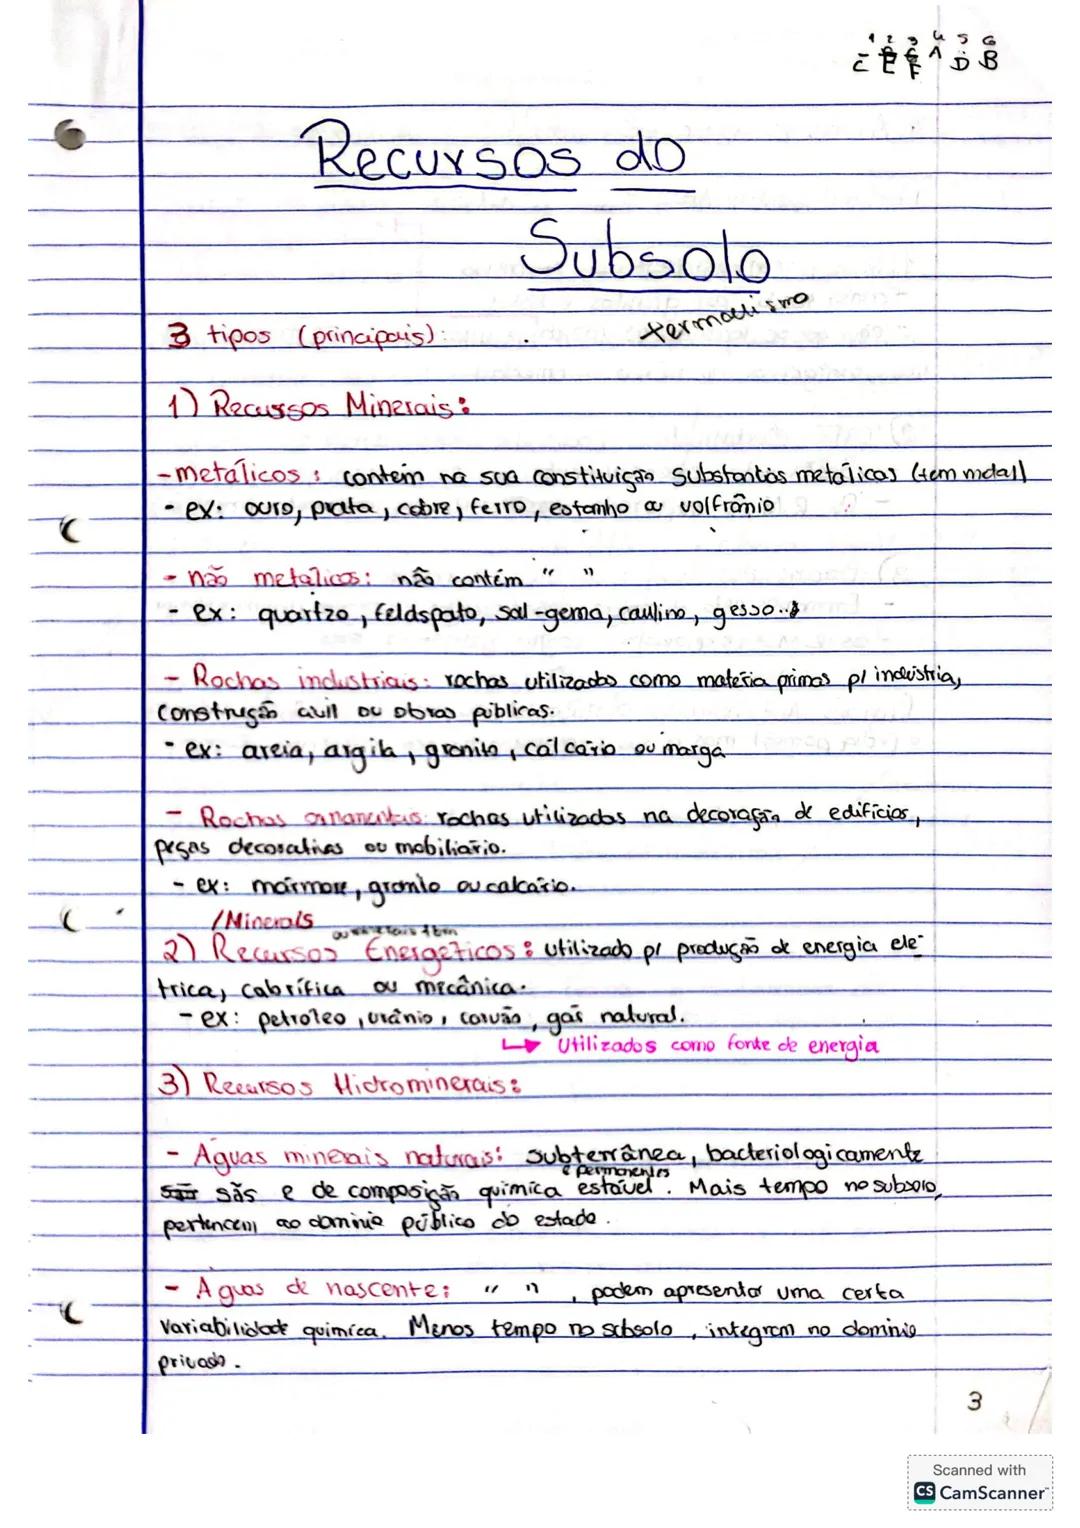 1 2 3 4 5 6
C E F A D B
Recursos do
Subsolo
termalismo
3 tipos (principais):
1) Recursos Minerais:
-metálicos: contém na sua constituição substantâs metálicas (tem metal)
- ex: ouro, prata, cobre, ferro, estanho ou volfrâmio
- não metálicos: não contém " "
- ex: quartzo, feldspato, sal-gema, caulino, gesso...
- Rochas industriais: rochas utilizadas como matéria primas p/ indústria,
construção civil ou obras públicas.
- ex: areia, argila, granito, calcário ou marga
- Rochas ornamentais: rochas utilizadas na decoração de edifícios,
peças decorativas ou mobiliário.
- ex: mármore, granito ou calcário.
/Minerais
2) Recursos Energéticos: utilizado p/ produção de energia elé-
trica, calorífica ou mecânica.
- ex: petróleo, urânio, carvão, gás natural.
↳ Utilizados como fonte de energia
3) Recursos Hidrominerais:
- Águas minerais naturais: subterrânea, bacteriologicamente
e permanentes
sãs e de composição química estável. Mais tempo no subsolo,
pertencem ao domínio público do estado.
- Águas de nascente: " ", podem apresentar uma certa
variabilidade química. Menos tempo no subsolo, integram no domínio
privado.
3
Scanned with
CS CamScanner